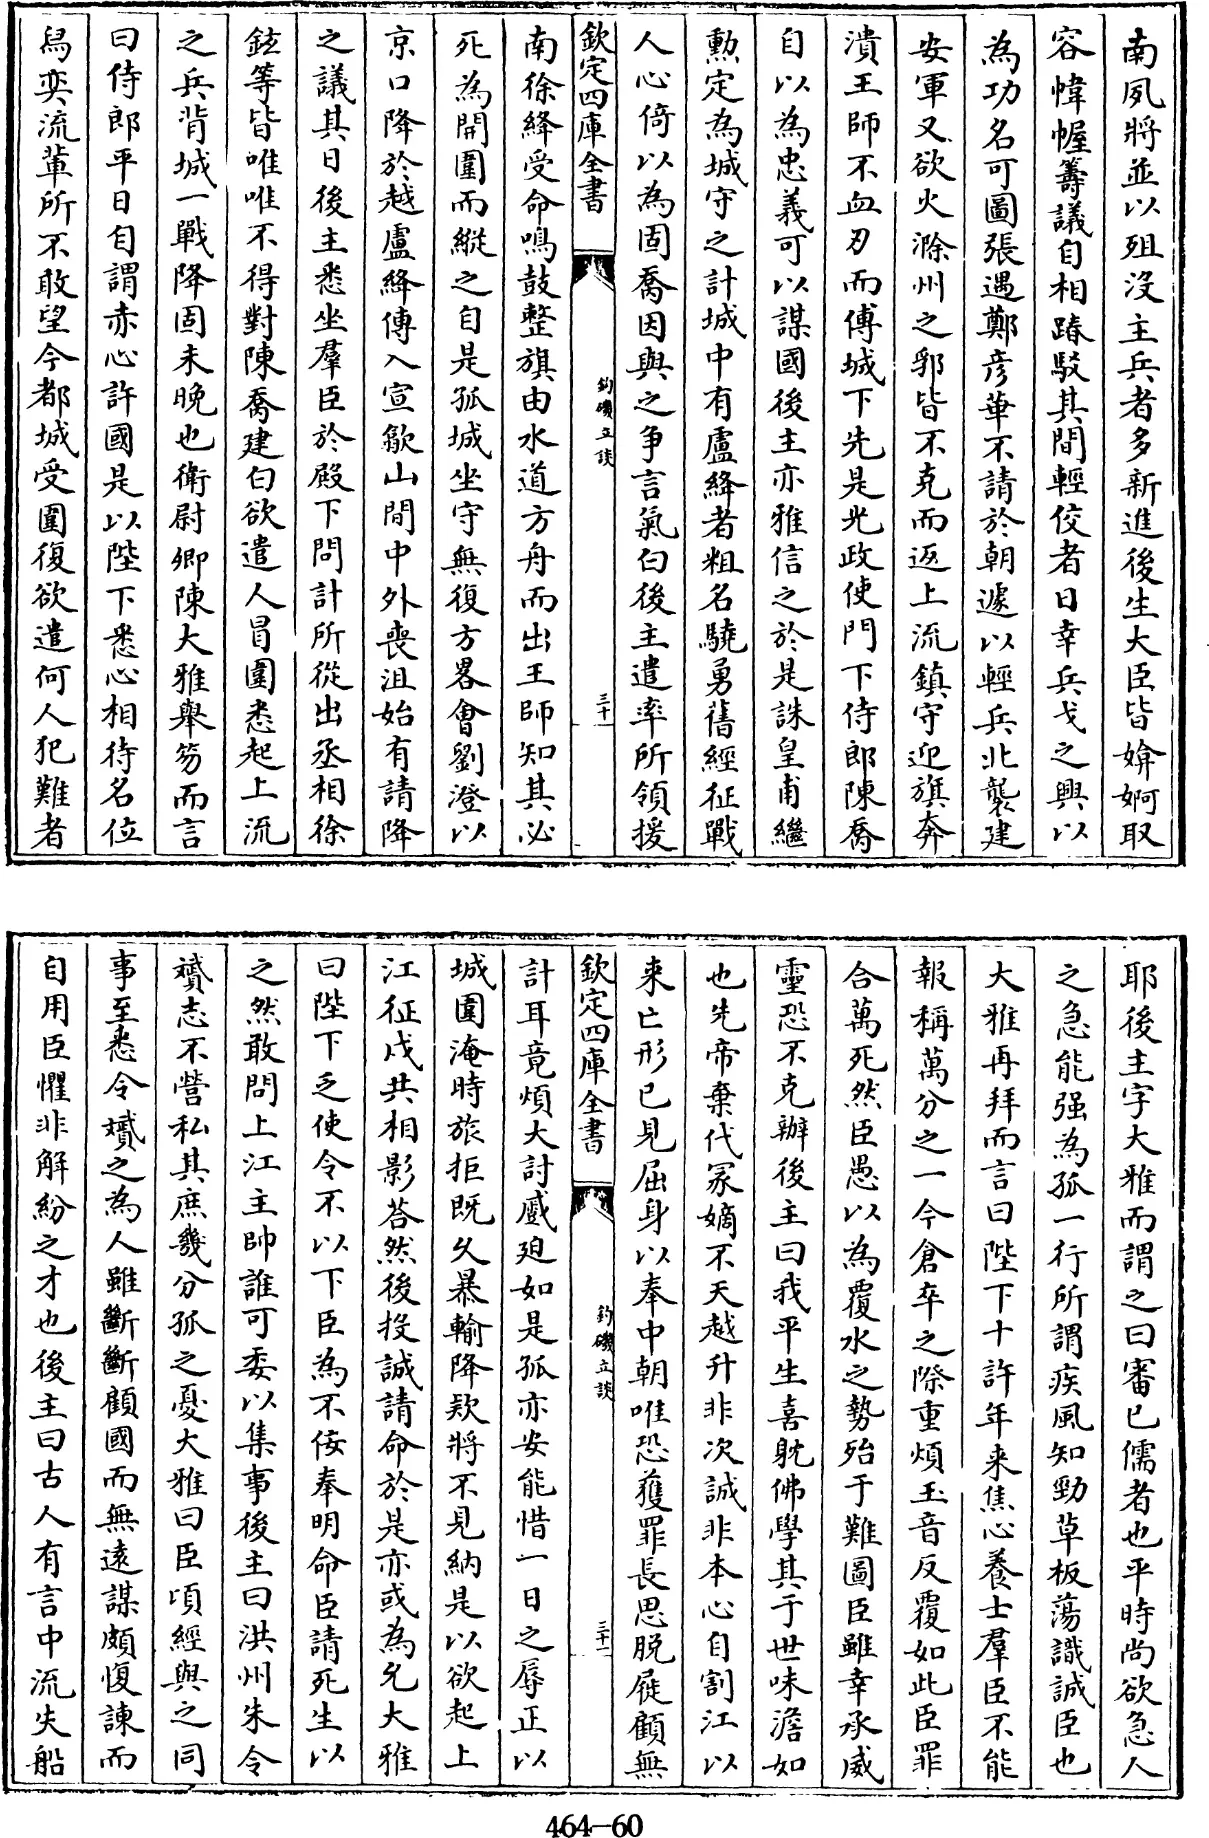 南夙將並以殂沒主兵者多新進後生大臣皆媕婀取
容幃幄籌議自相踳駮其間輕佼者日幸兵戈之興以
為功名可圖張遇鄭彦華不請於朝遽以輕兵北襲建
安軍又欲火滁州之郛皆不克而返上流鎮守迎旗奔
潰王師不血刃而傅城下先是光政使門下侍郎陳喬
自以為忠義可以謀國後主亦雅信之於是誅皇甫繼
勲定為城守之計城中有盧絳者粗名驍勇舊經征戰
人心倚以為固喬因與之争言氣白後主遣率所領援
欽定四庫全書
釣磯立談
三十
南徐絳受命鳴鼓整旗由水道方舟而出王師知其必
死為開圍而縱之自是孤城坐守無復方畧會劉澄以
京口降於越盧絳傅入宣歙山間中外喪沮始有請降
之議其日後主悉坐羣臣於殿下問計所從出丞相徐
鉉等皆唯唯不得對陳喬建白欲遣人冒圍悉起上流
之兵背城一戰降固未晚也衛尉卿陳大雅舉笏而言
曰侍郎平日自謂赤心許國是以陛下悉心相待名位
舄奕流輩所不敢望今都城受圍復欲遣何人犯難者
耶後主字大雅而謂之曰審己儒者也平時尚欲急人
之急能强為孤一行所謂疾風知勁草板蕩識誠臣也
大雅再拜而言曰陛下十許年来焦心養士羣臣不能
報稱萬分之一今倉卒之際重煩玉音反覆如此臣罪
合萬死然臣愚以為覆水之勢殆于難圖臣雖幸承威
靈恐不克辦後主曰我平生喜躭佛學其于世味澹如
也先帝棄代冢嫡不天越升非次誠非本心自割江以
来亡形已見屈身以奉中朝唯恐獲罪長思脱屣顧無
欽定四庫全書
釣磯立談
三十一
計耳竟煩大討蹙迫如是孤亦安能惜一日之辱正以
城圍淹時旅拒既久暴輸降欵將不見納是以欲起上
江征戍共相影荅然後投誠請命於是亦或為允大雅
曰陛下乏使令不以下臣為不佞奉明命臣請死生以
之然敢問上江主帥誰可委以集事後主曰洪州朱令
贇志不營私其庶幾分孤之憂大雅曰臣頃經與之同
事至悉令贇之為人雖斷斷顧國而無遠謀頗愎諫而
自用臣懼非解紛之才也後主曰古人有言中流失船
464-60